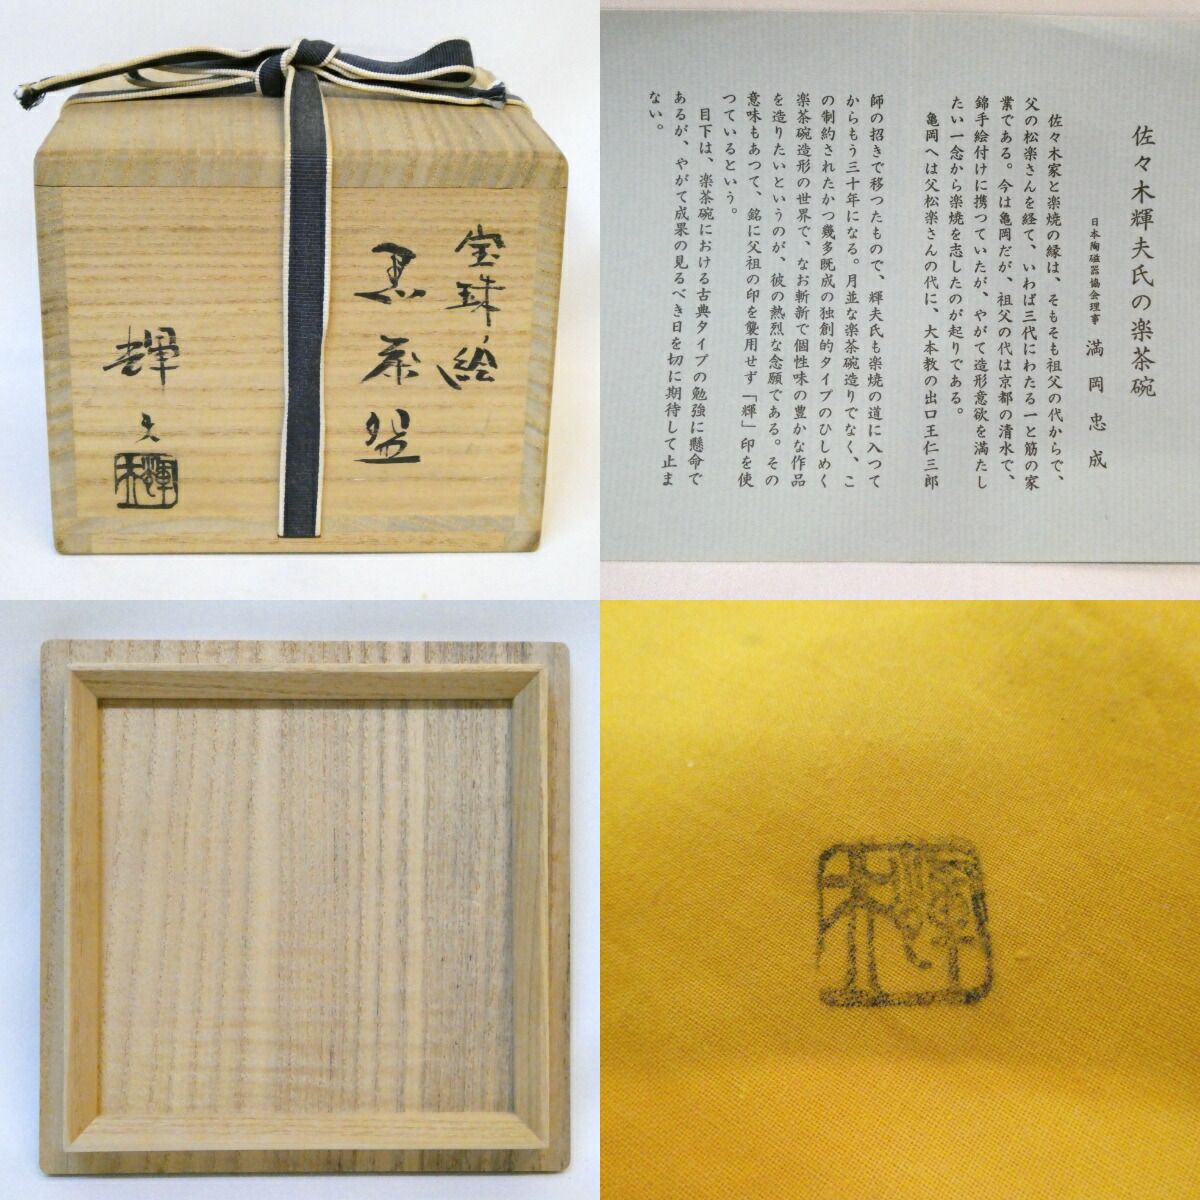 宝珠絵
黒茶盌
輝夫
輝夫
佐々木輝夫氏の楽茶碗
日本陶磁器協会理事 満岡忠成
佐々木家と楽焼の縁は、そもそも祖父の代からで、
父の松楽さんを経て、いわば三代にわたる一と筋の家
業である。今は亀岡だが、祖父の代は京都の清水で、
錦手絵付けに携つていたが、やがて造形意欲を満たし
たい一念から楽焼を志したのが起りである。
亀岡へは父松楽さんの代に、大本教の出口王仁三郎
師の招きで移つたもので、輝夫氏も楽焼の道に入つて
からもう三十年になる。月並な楽茶碗造りでなく、こ
の制約されたかつ幾多既成の独創的タイプのひしめく
楽茶碗造形の世界で、なお斬新で個性味の豊かな作品
を造りたいというのが、彼の熱烈な念願である。その
意味もあつて、銘に父祖の印を襲用せず「輝」印を使
つているという。
目下は、楽茶碗における古典タイプの勉強に懸命で
あるが、やがて成果の見るべき日を切に期待して止ま
ない。
輝夫